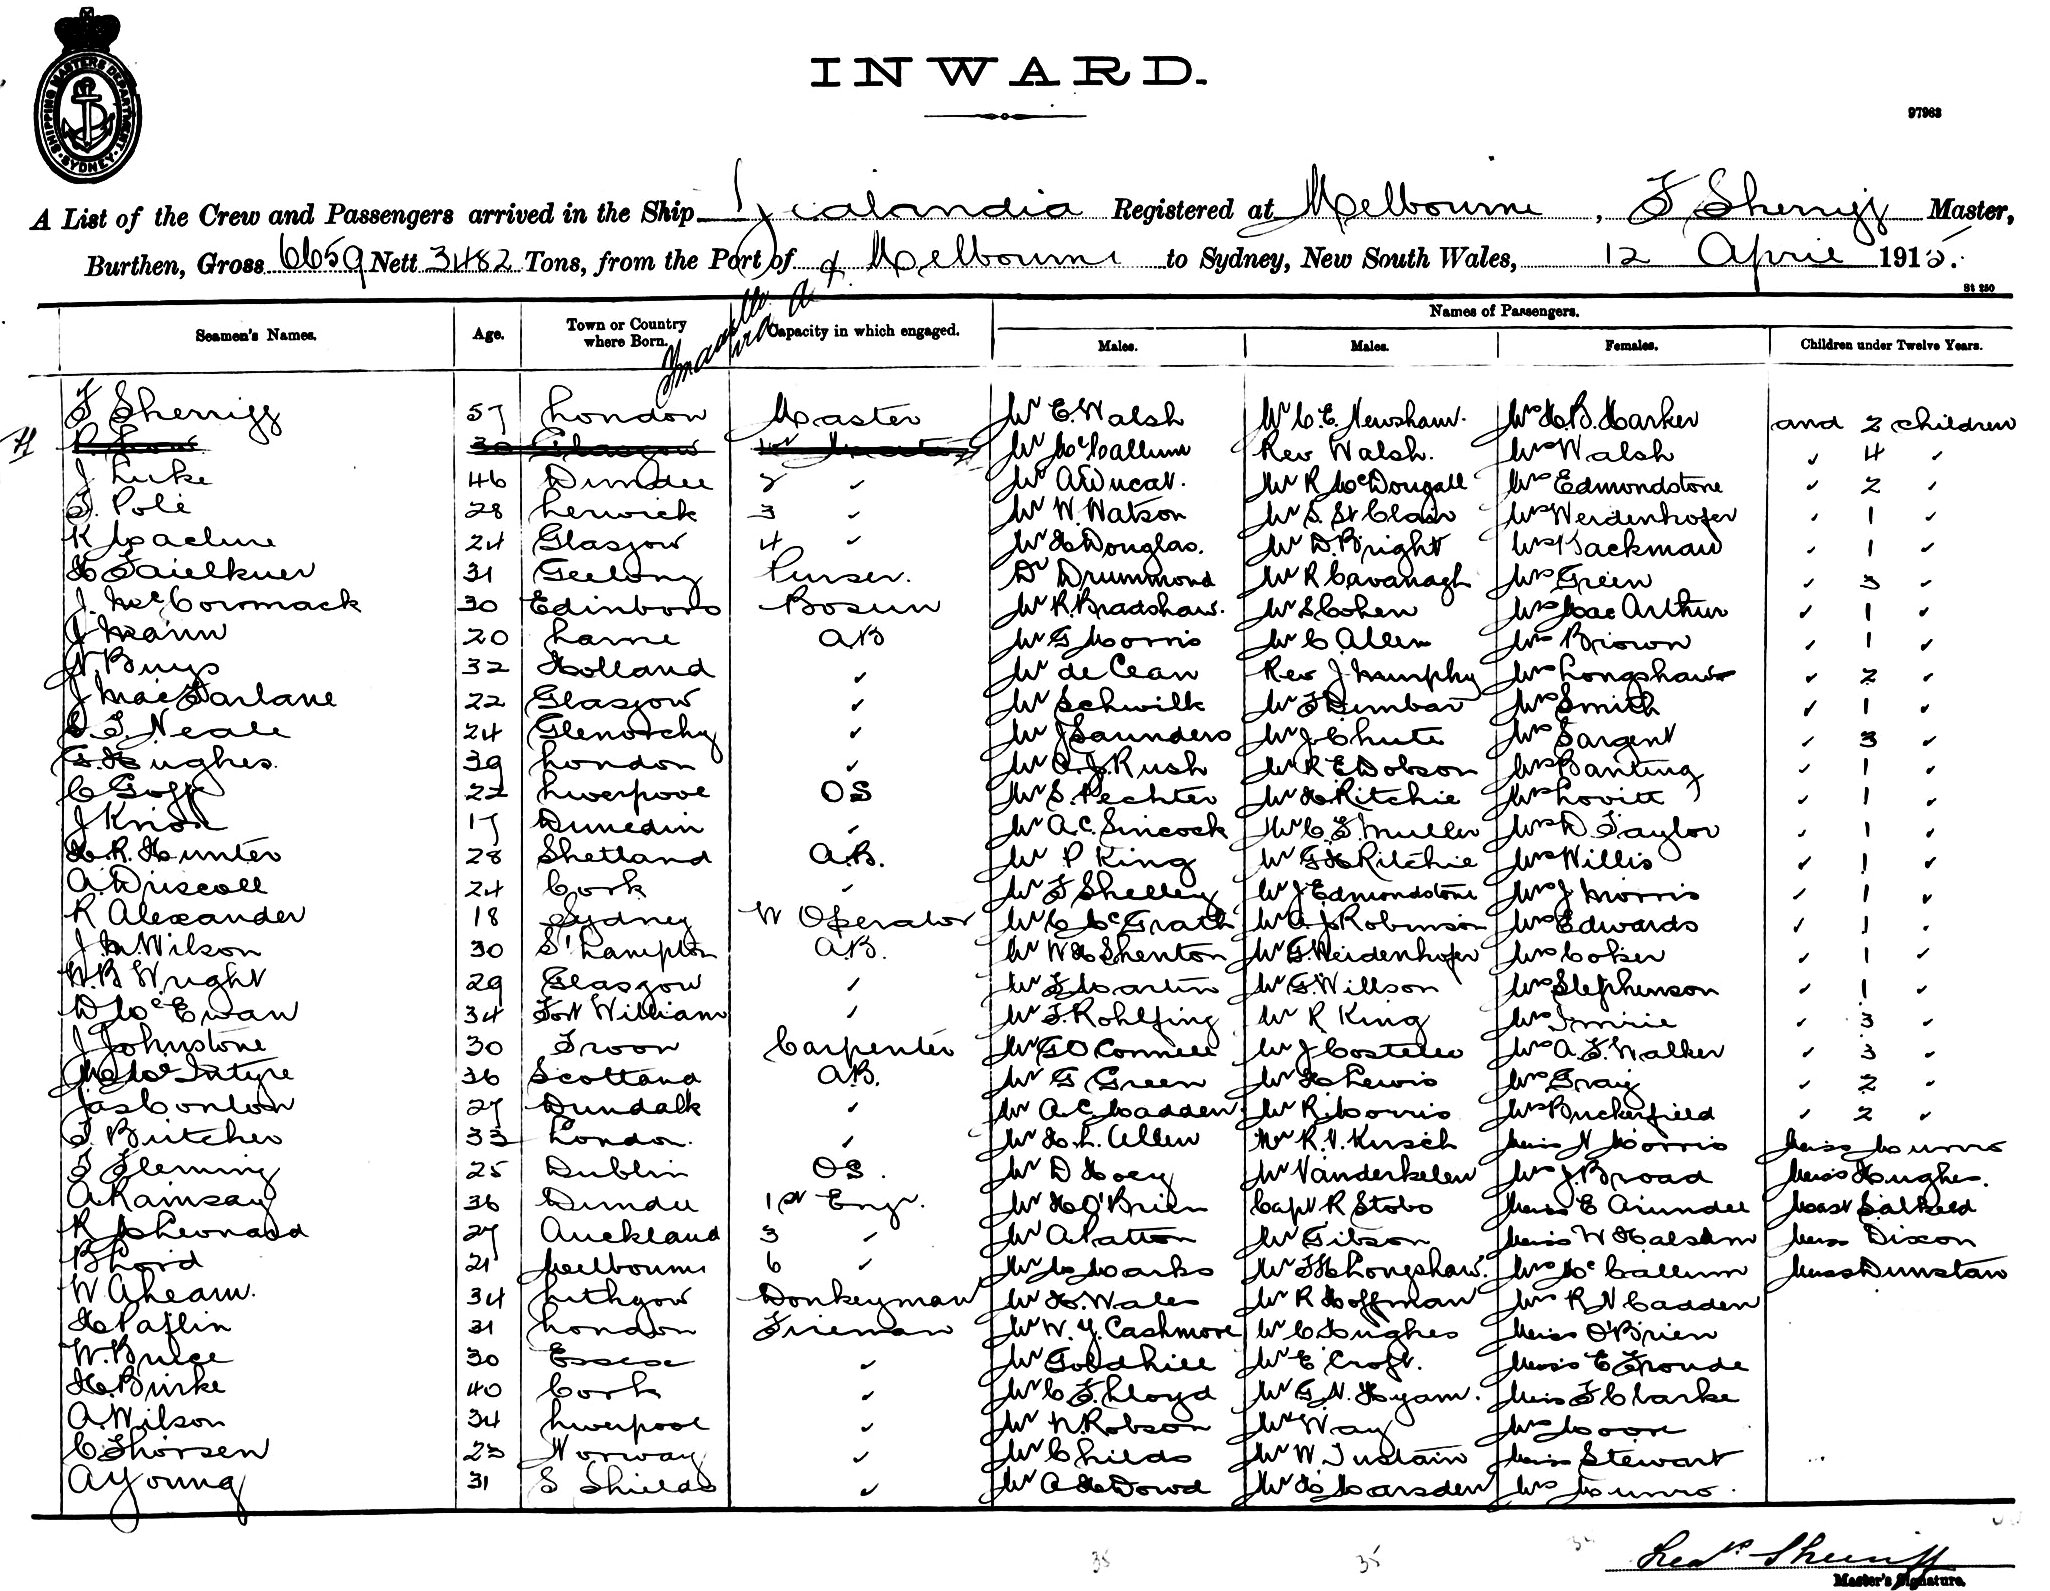 SHIPPING MASTERS DEPARTMENT SYDNEY
INWARD.
97963
A List of the Crew and Passengers arrived in the Ship Zealandia Registered at Melbourne, F Sherriff Master,
Burthen, Gross 6659 Nett 3482 Tons, from the Port of Melbourne to Sydney, New South Wales, 12 April 1915.
St 250
Names of Passengers.
Seamen's Names. Age. Town or Country where Born. Capacity in which engaged. Males. Males. Females. Children under Twelve Years.
F Sherriff 57 London Master Mr E. Walsh Mr C. E. Newshaw. Mrs H. B. Harker and 2 children
30 Glasgow Mr McCallum Rev Walsh. Mrs Walsh ✓ 4 ✓
J Luke 46 Dundee 2 ✓ Mr A Ducat. Mr R McDougall Mrs Edmondstone ✓ 2 ✓
F. Pole 28 Lerwick 3 ✓ Mr W. Watson Mr S. St Clair Mrs Weidenhofer ✓ 1 ✓
K Maclure 24 Glasgow 4 ✓ Mr H Douglas. Mr D. Bright Mrs Hackman ✓ 1 ✓
H Faielkner 31 Geelong Purser. Dr Drummond Mr R Cavanagh Mrs Green ✓ 3 ✓
J. McCormack 30 Edinboro Bosun Mr R. Bradshaw. Mr S Cohen Mrs MacArthur ✓ 1 ✓
J Mann 20 Larne AB Mr G Morris Mr C Allen Mrs Brown ✓ 1 ✓
N. Buys 32 Holland ✓ Mr de Cean Rev J. Murphy Mrs Longshaw ✓ 2 ✓
J MacFarlane 22 Glasgow ✓ Mr Schwilk Mr F Dunbar Mrs Smith ✓ 1 ✓
F. Neale 24 Glenorchy ✓ Mr J Saunders Mr J Chute Mrs Sargent ✓ 3 ✓
G. Hughes. 39 London ✓ Mr A. J. Rush Mr R E Dobson Mrs Banting ✓ 1 ✓
C Goff 22 Liverpool OS Mr S. Pechter Mr H. Ritchie Mrs Lovitt ✓ 1 ✓
J Knox 17 Dunedin ✓ Mr A. C. Sincock Mr C F Muller Mrs D. Taylor ✓ 1 ✓
H. R. Hunter 28 Shetland A.B. Mr P King Mr G H Ritchie Mrs Willis ✓ 1 ✓
A. Driscoll 24 Cork ✓ Mr F Shelley Mr J Edmondstone Mrs J Morris ✓ 1 ✓
R Alexander 18 Sydney W Operator Mr C McGrath Mr A. J Robinson Mrs Edwards ✓ 1 .
J. M. Wilson 30 S'Hampton A.B. Mr W H Shenton Mr G. Weidenhofer Mrs Coker ✓ 1 ✓
W. B Wright 29 Glasgow ✓ Mr F Martin Mr G. Willson Mrs Stephenson ✓ 1 ✓
D McEwan 34 Fort William ✓ Mr F. Rohlfing Mr R King Mrs Imrie ✓ 3 ✓
J Johnstone 30 Troon Carpenter Mr G O Connell Mr J Costello Mrs A. F. Walker ✓ 3 ✓
M McIntyre 36 Scotland A.B. Mr G Green Mr H Lewis Mrs Gray ✓ 2 ✓
Jas Conlon 27 Dundalk ✓ Mr A. C. Madden. Mr R. Morris Mrs Buckerfield ✓ 2 ✓
F. Butcher 33 London. ✓ Mr H. L. Allen Mr R. V. Kusch Miss N Morris Miss Munro
F Fleming 25 Dublin OS. Mr D Hoey Mr Vanderkelen Mrs J. Broad Miss Hughes.
A Ramsay 36 Dundee 1st Engr. Mr H O'Brien Capt R Stobo Miss E Arundel Mast Salkeld
R McLeonard 27 Auckland 3 ✓ Mr A Patton Mr Gibson Miss W Halsam Miss Dixon
B Lord 21 Melbourne 6 ✓ Mr M Marks Mr F H Longshaw. Mrs McCallum Miss Dunstan
W Ahearn. 34 Lithgow Donkeyman Mr H. Wales Mr R Hoffman Mrs R N Cadden
H Paflin 31 London Fireman Mr W. J. Cashmore Mr C Hughes Miss O'Brien
W. Bruce 30 Essex ✓ Mr Goldhill Mr E Croft. Miss E Froude
H. Burke 40 Cork ✓ Mr C F Lloyd Mr G. N. Hyam. Miss F Clarke
A. Wilson 34 Liverpool ✓ Mr N. Robson Mr Way Mrs Moore
C. Thorsen 23 Norway ✓ Mr Childs Mr W Tustain Miss Stewart
A Young 31 S Shields ✓ Mr A H Dowd Mr H Marsden Mrs Munro.
35 35
Fredk Sherriff
Master's Signature.